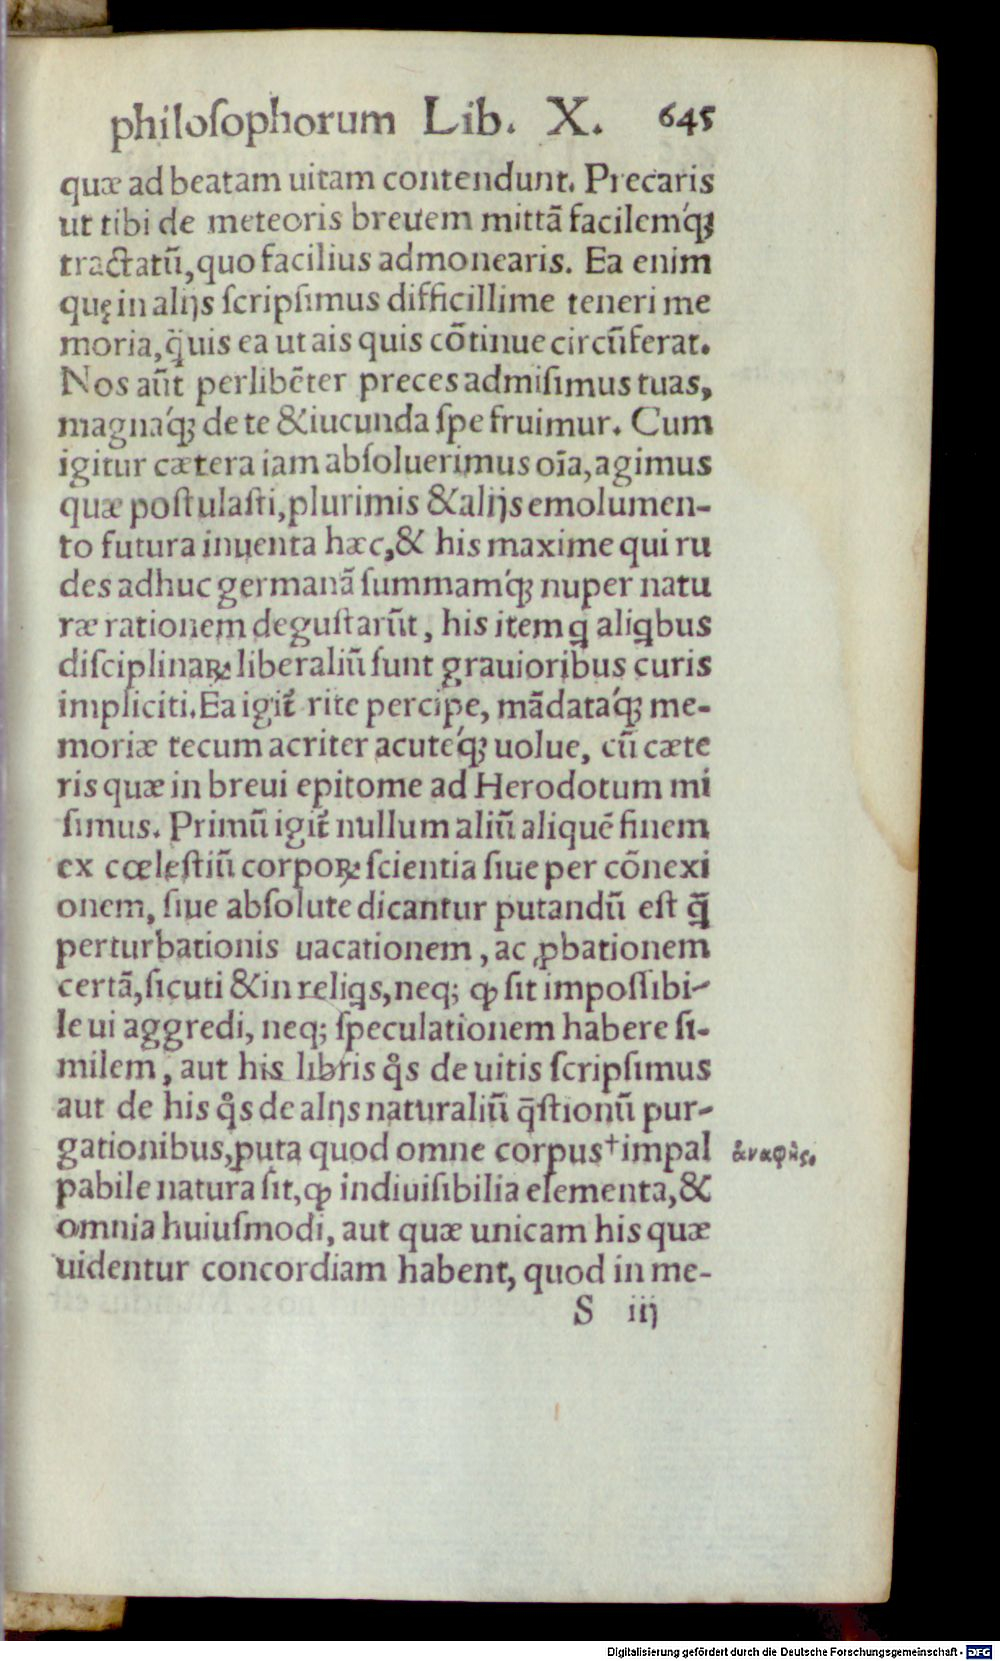 philoſophorum Lib. X. 645
quæ ad beatam uitam contendunt. Precaris
ut tibi de meteoris breuem mittã facilemq́ꝫ
tractatũ, quo facilius admonearis. Ea enim
quę in alijs ſcripſimus difficillime teneri me
moria, q̃uis ea ut ais quis cõtinue circũferat.
Nos aũt perlibẽter preces admiſimus tuas,
magnaq́ꝫ de te & iucunda ſpe fruimur. Cum
igitur cætera iam abſoluerimus oĩa, agimus
quæ poſtulaſti, plurimis & alijs emolumen-
to futura inuenta hæc, & his maxime qui ru
des adhuc germanã ſummamq́ꝫ nuper natu
ræ rationem deguſtarũt, his item ꝗ aliꝗbus
diſciplinaꝝ liberaliũ ſunt grauioribus curis
impliciti. Ea igit᷑ rite percipe, mãdataq́ꝫ me-
moriæ tecum acriter acuteq́ꝫ uolue, cũ cæte
ris quæ in breui epitome ad Herodotum mi
ſimus. Primũ igit᷑ nullum aliũ aliquẽ finem
ex cœleſtiũ corpoꝝ ſcientia ſiue per cõnexi
onem, ſiue abſolute dicantur putandũ eſt ꝗ̃
perturbationis uacationem, ac ꝓbationem
certã, ſicuti & in reliꝗs, neq; ꝙ ſit impoſſibi-
le ui aggredi, neq; ſpeculationem habere ſi-
milem, aut his libris qͦs de uitis ſcripſimus
aut de his qͦs de alijs naturaliũ q̃ſtionũ pur-
gationibus, puta quod omne corpus† impal
pabile natura ſit, ꝙ indiuiſibilia elementa, &
omnia huiuſmodi, aut quæ unicam his quæ
uidentur concordiam habent, quod in me-
S iij
ἀναφὴς.
Digitalisierung gefördert durch die Deutsche Forschungsgemeinschaft - DFG